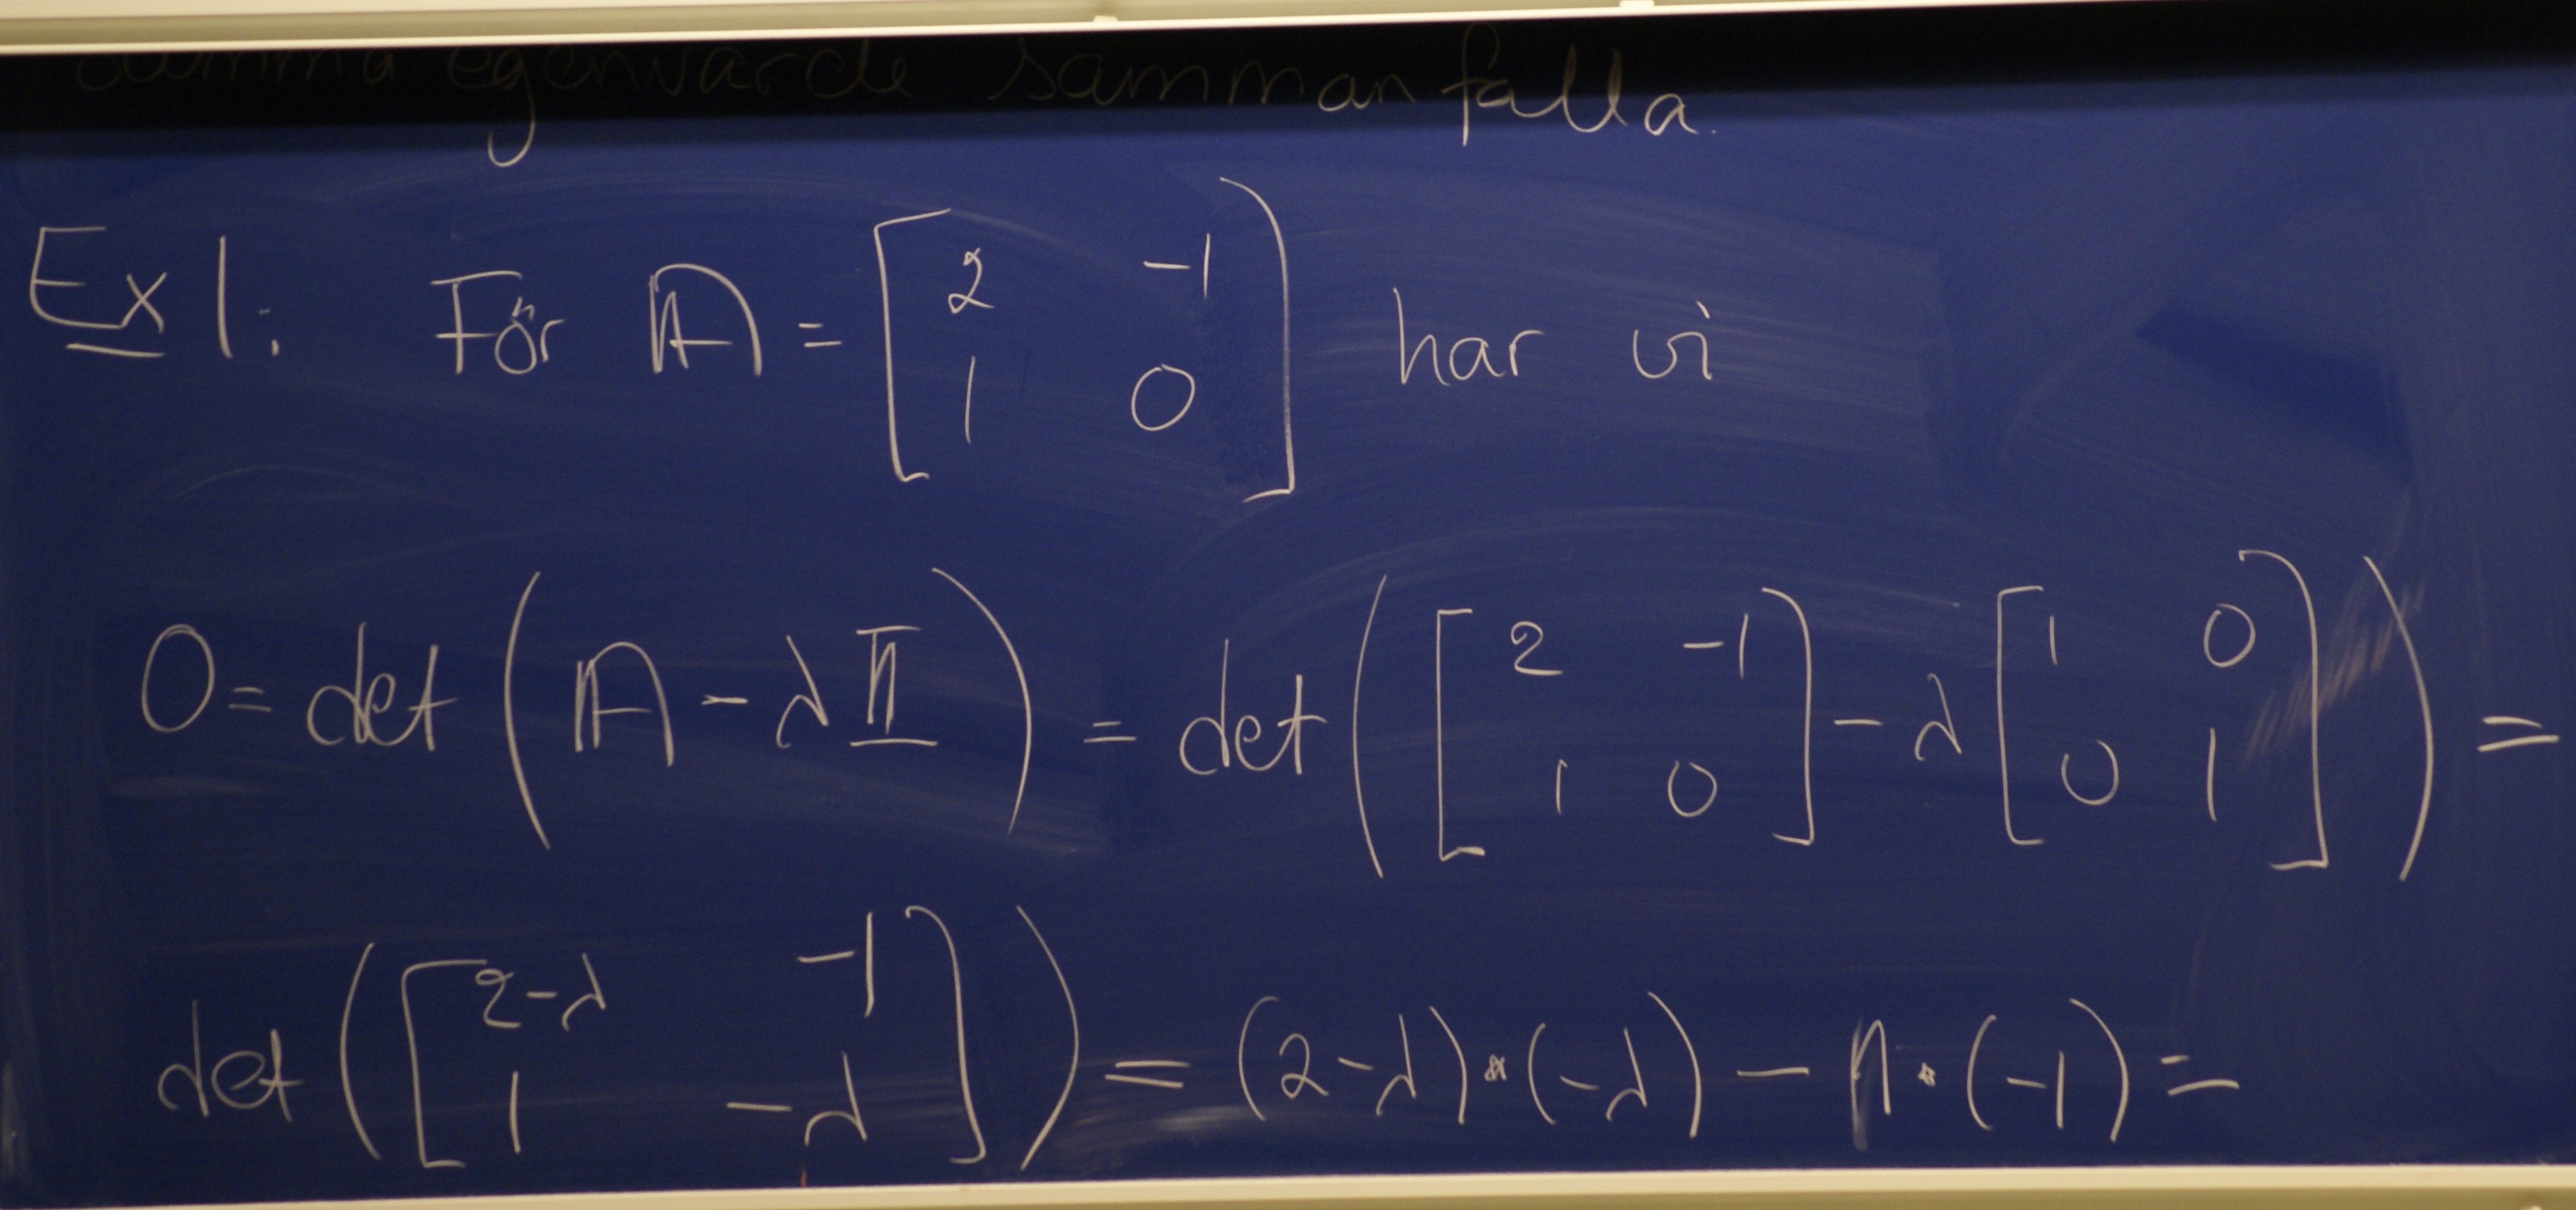 samma egenvärde sammanfalla.
Ex 1: För A = [2 -1; 1 0] har vi
0 = det(A - λI) = det([2 -1; 1 0] - λ[1 0; 0 1]) =
det([2-λ -1; 1 -λ]) = (2-λ)·(-λ) - 1·(-1) =